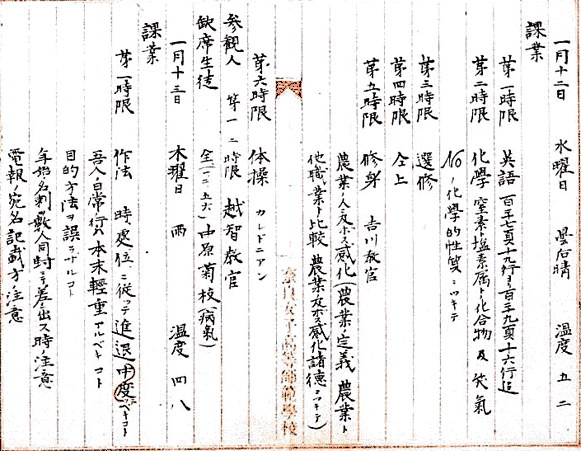 一月十二日 水曜日 曇后晴 温度 五二
課業
第一時限 英語 百三十七頁十九行ヨリ百三十九頁十六行迄
第二時限 化学 窒素塩素属ト化合物及笑気
NOノ化学的性質ニツキテ
第三時限 選修
第四時限 仝上
第五時限 修身 吉川教官
農業ノ人ニ及ボス感化(農業ノ定義 農業ト
他職業ト比較 農業ノ及ボス感化諸徳ニツキテ)
奈良女子高等師範學校
第六時限 体操 カレドニアン
参観人 第一二時限 越智教官
欠席生徒 全(一二五六)由原菊枝(病気)
一月十三日 木曜日 雨 温度 四八
課業
第一時限 作法 時処位ニ従ッテ進退中度ベキコト
吾人日常行ハ本末軽重アルベキコト
目的方法ヲ誤ラザルコト
年始名刺数人同封ニテ差出ス時ノ注意
電報ノ宛名記載方ノ注意